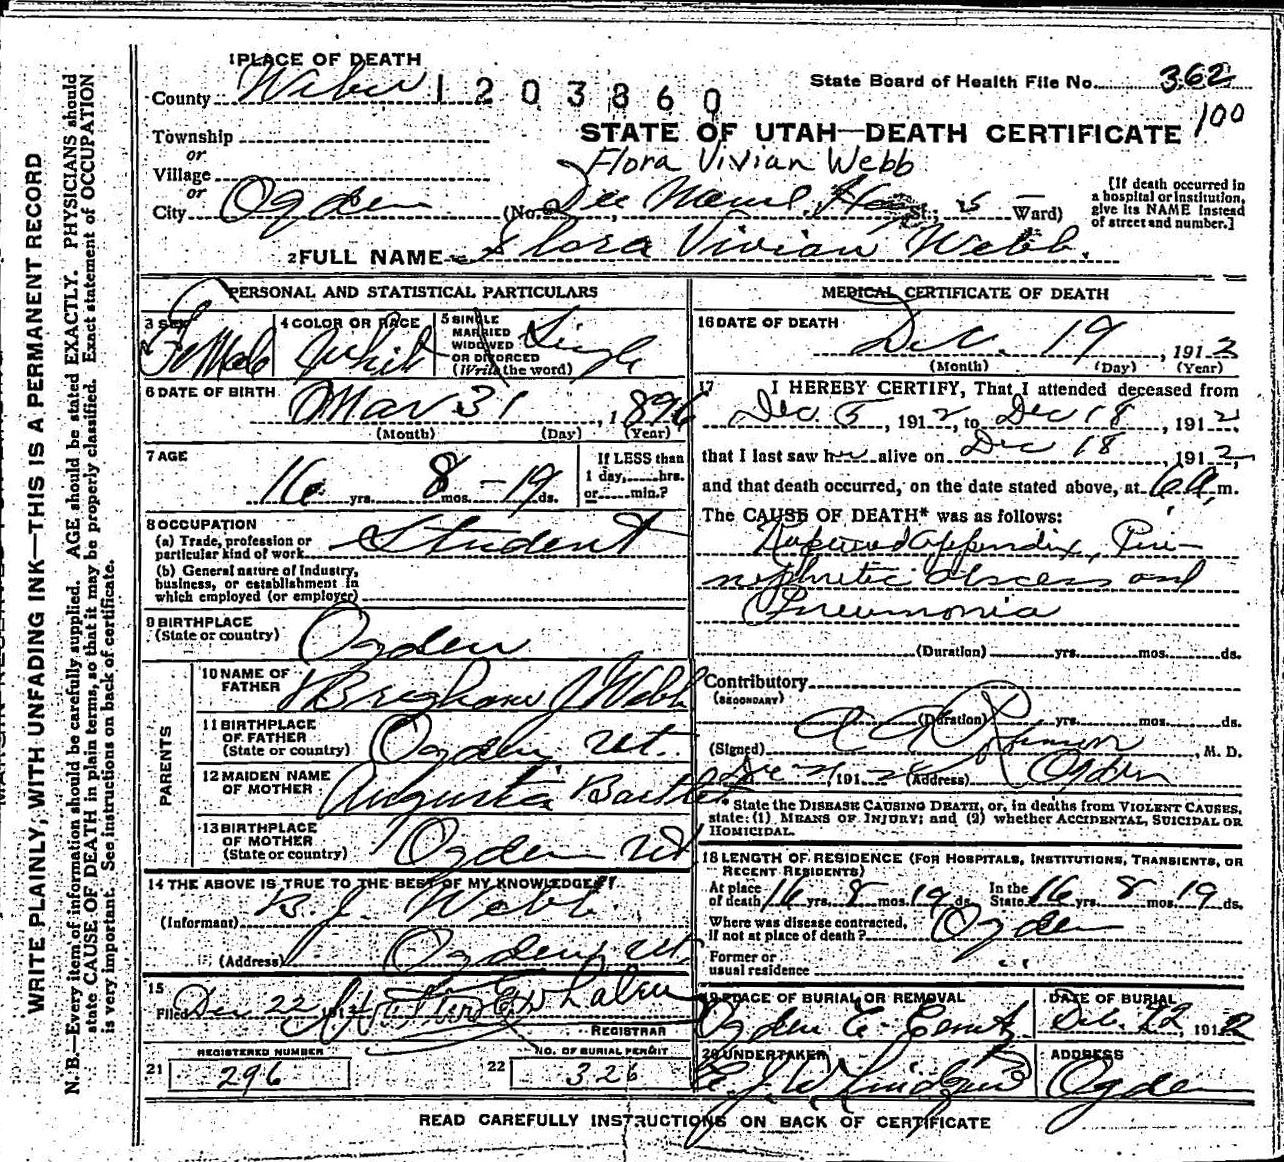 1 PLACE OF DEATH
County Weber 1203860
State Board of Health File No. 362
100
Township
or
Village
or
City Ogden
STATE OF UTAH—DEATH CERTIFICATE
Flora Vivian Webb
(No. Dee Meml. Hos St.; 5 Ward)
[If death occurred in
a hospital or institution,
give its NAME instead
of street and number.]
2 FULL NAME Flora Vivian Webb.
PERSONAL AND STATISTICAL PARTICULARS
3 SEX Female
4 COLOR OR RACE White
5 SINGLE
MARRIED
WIDOWED
OR DIVORCED
(Write the word) Single
6 DATE OF BIRTH Mar 31, 1896
(Month) (Day) (Year)
7 AGE
16 yrs. 8 mos. 19 ds.
If LESS than
1 day, hrs.
or min.?
8 OCCUPATION
(a) Trade, profession or
particular kind of work Student
(b) General nature of Industry,
business, or establishment in
which employed (or employer)
9 BIRTHPLACE
(State or country) Ogden
PARENTS
10 NAME OF
FATHER Brigham J Webb
11 BIRTHPLACE
OF FATHER
(State or country) Ogden, Ut.
12 MAIDEN NAME
OF MOTHER Augusta
13 BIRTHPLACE
OF MOTHER
(State or country) Ogden Ut
14 THE ABOVE IS TRUE TO THE BEST OF MY KNOWLEDGE
(Informant) B. J. Webb
(Address) Ogden, Ut.
15
Filed Dec 22 191
REGISTRAR
REGISTERED NUMBER
21 296
NO. OF BURIAL PERMIT
22 326
MEDICAL CERTIFICATE OF DEATH
16 DATE OF DEATH
Dec. 19, 1912
(Month) (Day) (Year)
17 I HEREBY CERTIFY, That I attended deceased from
Dec. 5, 1912, to Dec 18, 1912,
that I last saw her alive on Dec 18, 1912,
and that death occurred, on the date stated above, at 6 A. m.
The CAUSE OF DEATH* was as follows:
Ruptured appendix, Peri-
nephretic abscess and
Pneumonia
(Duration) yrs. mos. ds.
Contributory
(SECONDARY)
(Duration) yrs. mos. ds.
(Signed) , M. D.
Dec 21 1912 (Address) Ogden
* State the DISEASE CAUSING DEATH, or, in deaths from VIOLENT CAUSES,
state: (1) MEANS OF INJURY; and (2) whether ACCIDENTAL, SUICIDAL OR
HOMICIDAL.
18 LENGTH OF RESIDENCE (FOR HOSPITALS, INSTITUTIONS, TRANSIENTS, OR
RECENT RESIDENTS)
At place
of death 16 yrs. 8 mos. 19 ds.
In the
State 16 yrs. 8 mos. 19 ds.
Where was disease contracted,
If not at place of death? Ogden
Former or
usual residence "
19 PLACE OF BURIAL OR REMOVAL
Ogden C. Cemt.
DATE OF BURIAL
Dec. 22, 1912
20 UNDERTAKER
ADDRESS
Ogden
READ CAREFULLY INSTRUCTIONS ON BACK OF CERTIFICATE
WRITE PLAINLY, WITH UNFADING INK—THIS IS A PERMANENT RECORD
N. B.—Every item of information should be carefully supplied. AGE should be stated EXACTLY. PHYSICIANS should
state CAUSE OF DEATH in plain terms, so that it may be properly classified. Exact statement of OCCUPATION
is very important. See instructions on back of certificate.